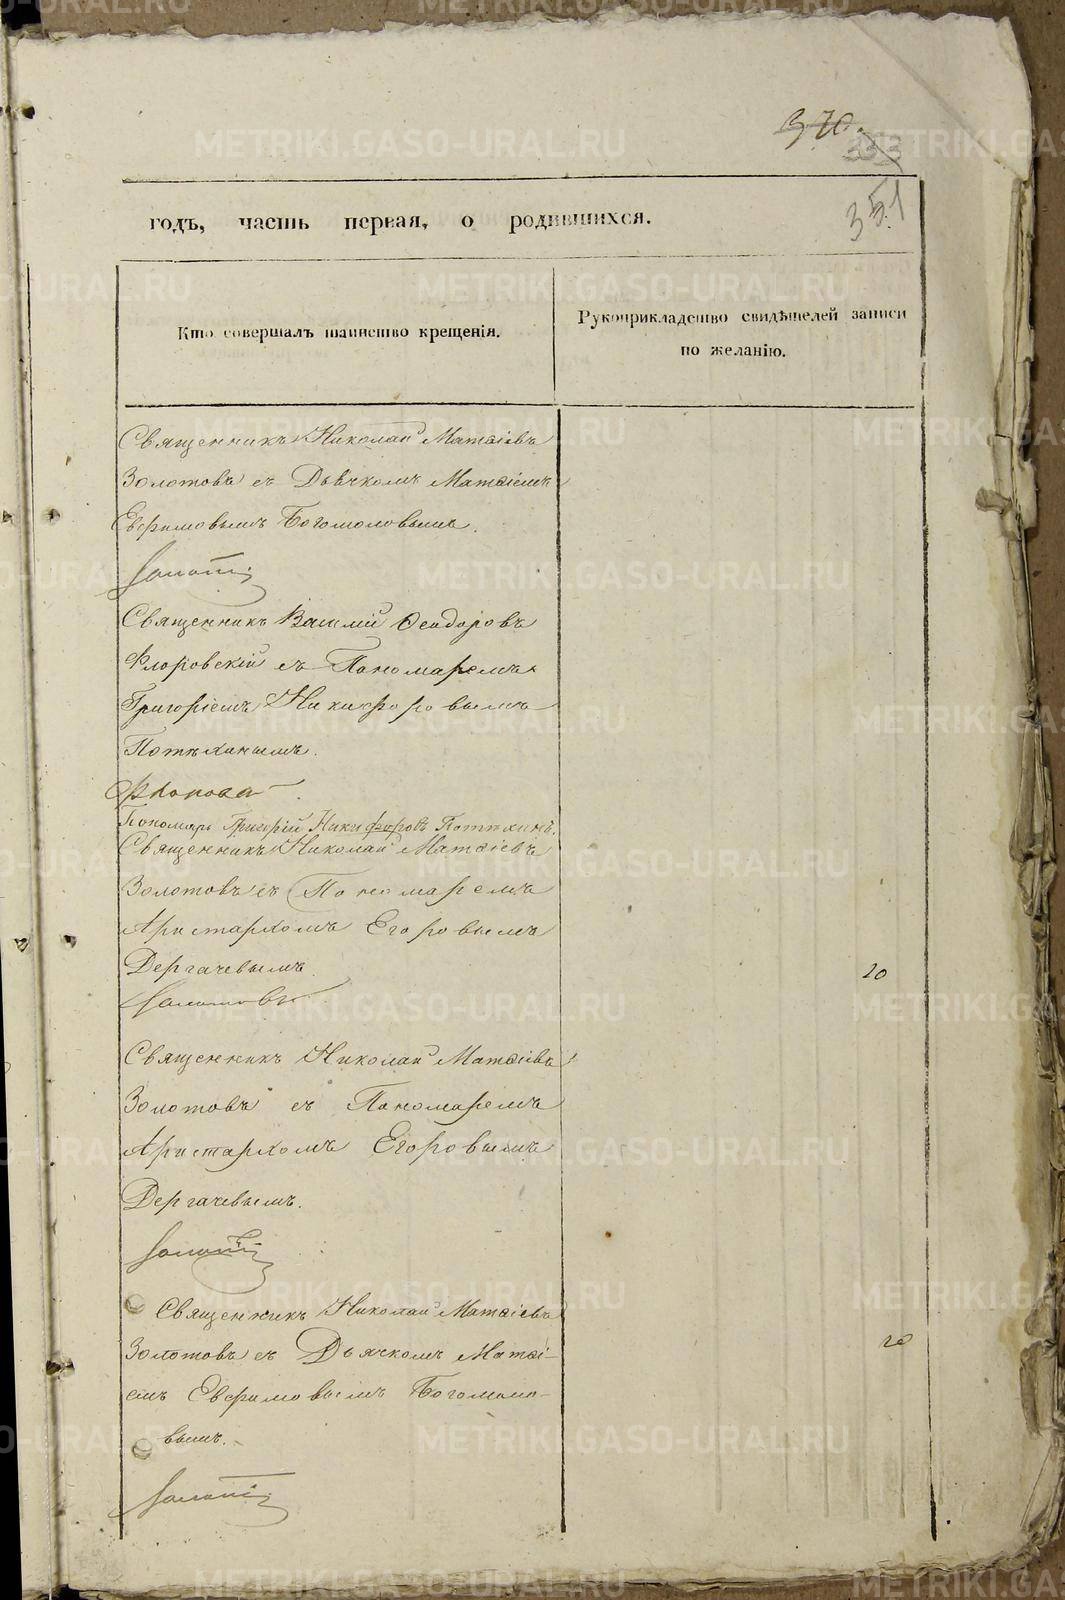 370.
333
351
годъ, часть первая, о родившихся.
Кто совершалъ таинство крещенія.
Рукоприкладство свидѣтелей записи
по желанію.
Священникъ Николай Матѳіевъ
Золотовъ съ Дьячкомъ Матѳіемъ
Евфимовымъ Богомоловымъ.
Священникъ Василій Ѳеодоровъ
Флоровскій съ Пономаремъ
Григоріемъ Никифоровымъ
Потѣхинымъ.
Пономарь Григорій Никифоровъ Потѣхинъ.
Священникъ Николай Матѳіевъ
Золотовъ съ Пономаремъ
Аристархомъ Егоровымъ
Дергачевымъ.
20
Золотовъ
Священникъ Николай Матѳіевъ
Золотовъ съ Пономаремъ
Аристархомъ Егоровымъ
Дергачевымъ.
Священникъ Николай Матѳіевъ
Золотовъ съ Дьячкомъ Матѳі-
20
емъ Евфимовымъ Богомоло-
вымъ.
METRIKI.GASO-URAL.RU